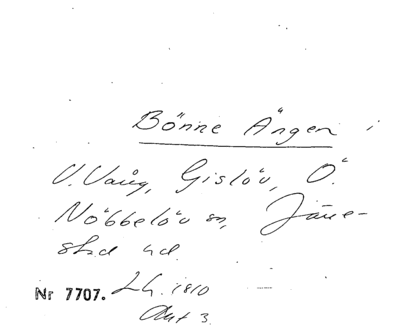 Bönne Ängen i
V. Vång, Gislöv, Ö.
Nöbbelöv sn, Järre-
stad hd.
Nr 7707. LH. 1810
Akt 3.